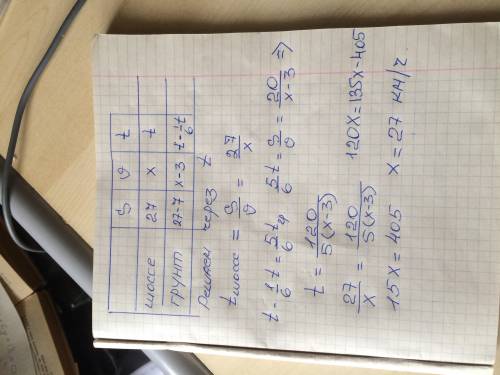 S ϑ t
шоссе 27 x t
грунт 27-7 x-3 t-1/6t
Решаем через t
t шоссе = S/ϑ = 27/x
t - 1/6 t = 5/6 t гр 5/6 t = S/ϑ = 20/x-3 =>
t = 120/5(x-3)
27/x = 120/5(x-3) 120x=135x-405
15x=405 x=27 км/ч.